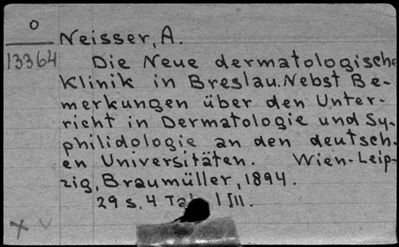 O
Neisser, A.
13364
Die Neue dermatologische
Klinik in Breslau. Nebst Be-
merkungen über den Unter-
richt in Dermatologie und Sy-
philidologie an den deutsch-
en Universitäten. Wien-Leip-
zig, Braumüller, 1894.
29 s. 4